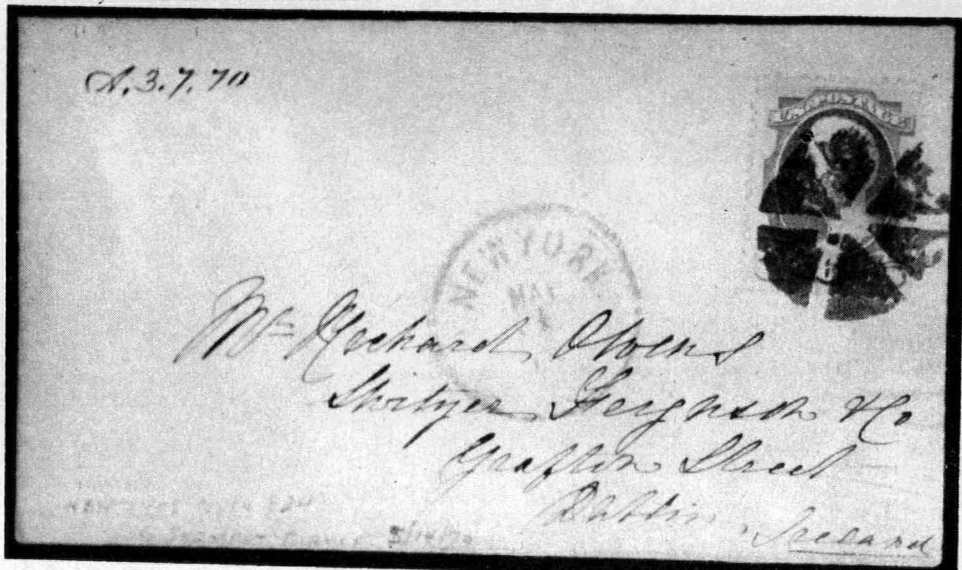 A. 3. 7. 70
U.S. POSTAGE
NEW YORK
MAY
Mr Richard Owens
Switzer Ferguson & Co
Grafton Street
Dublin
Ireland